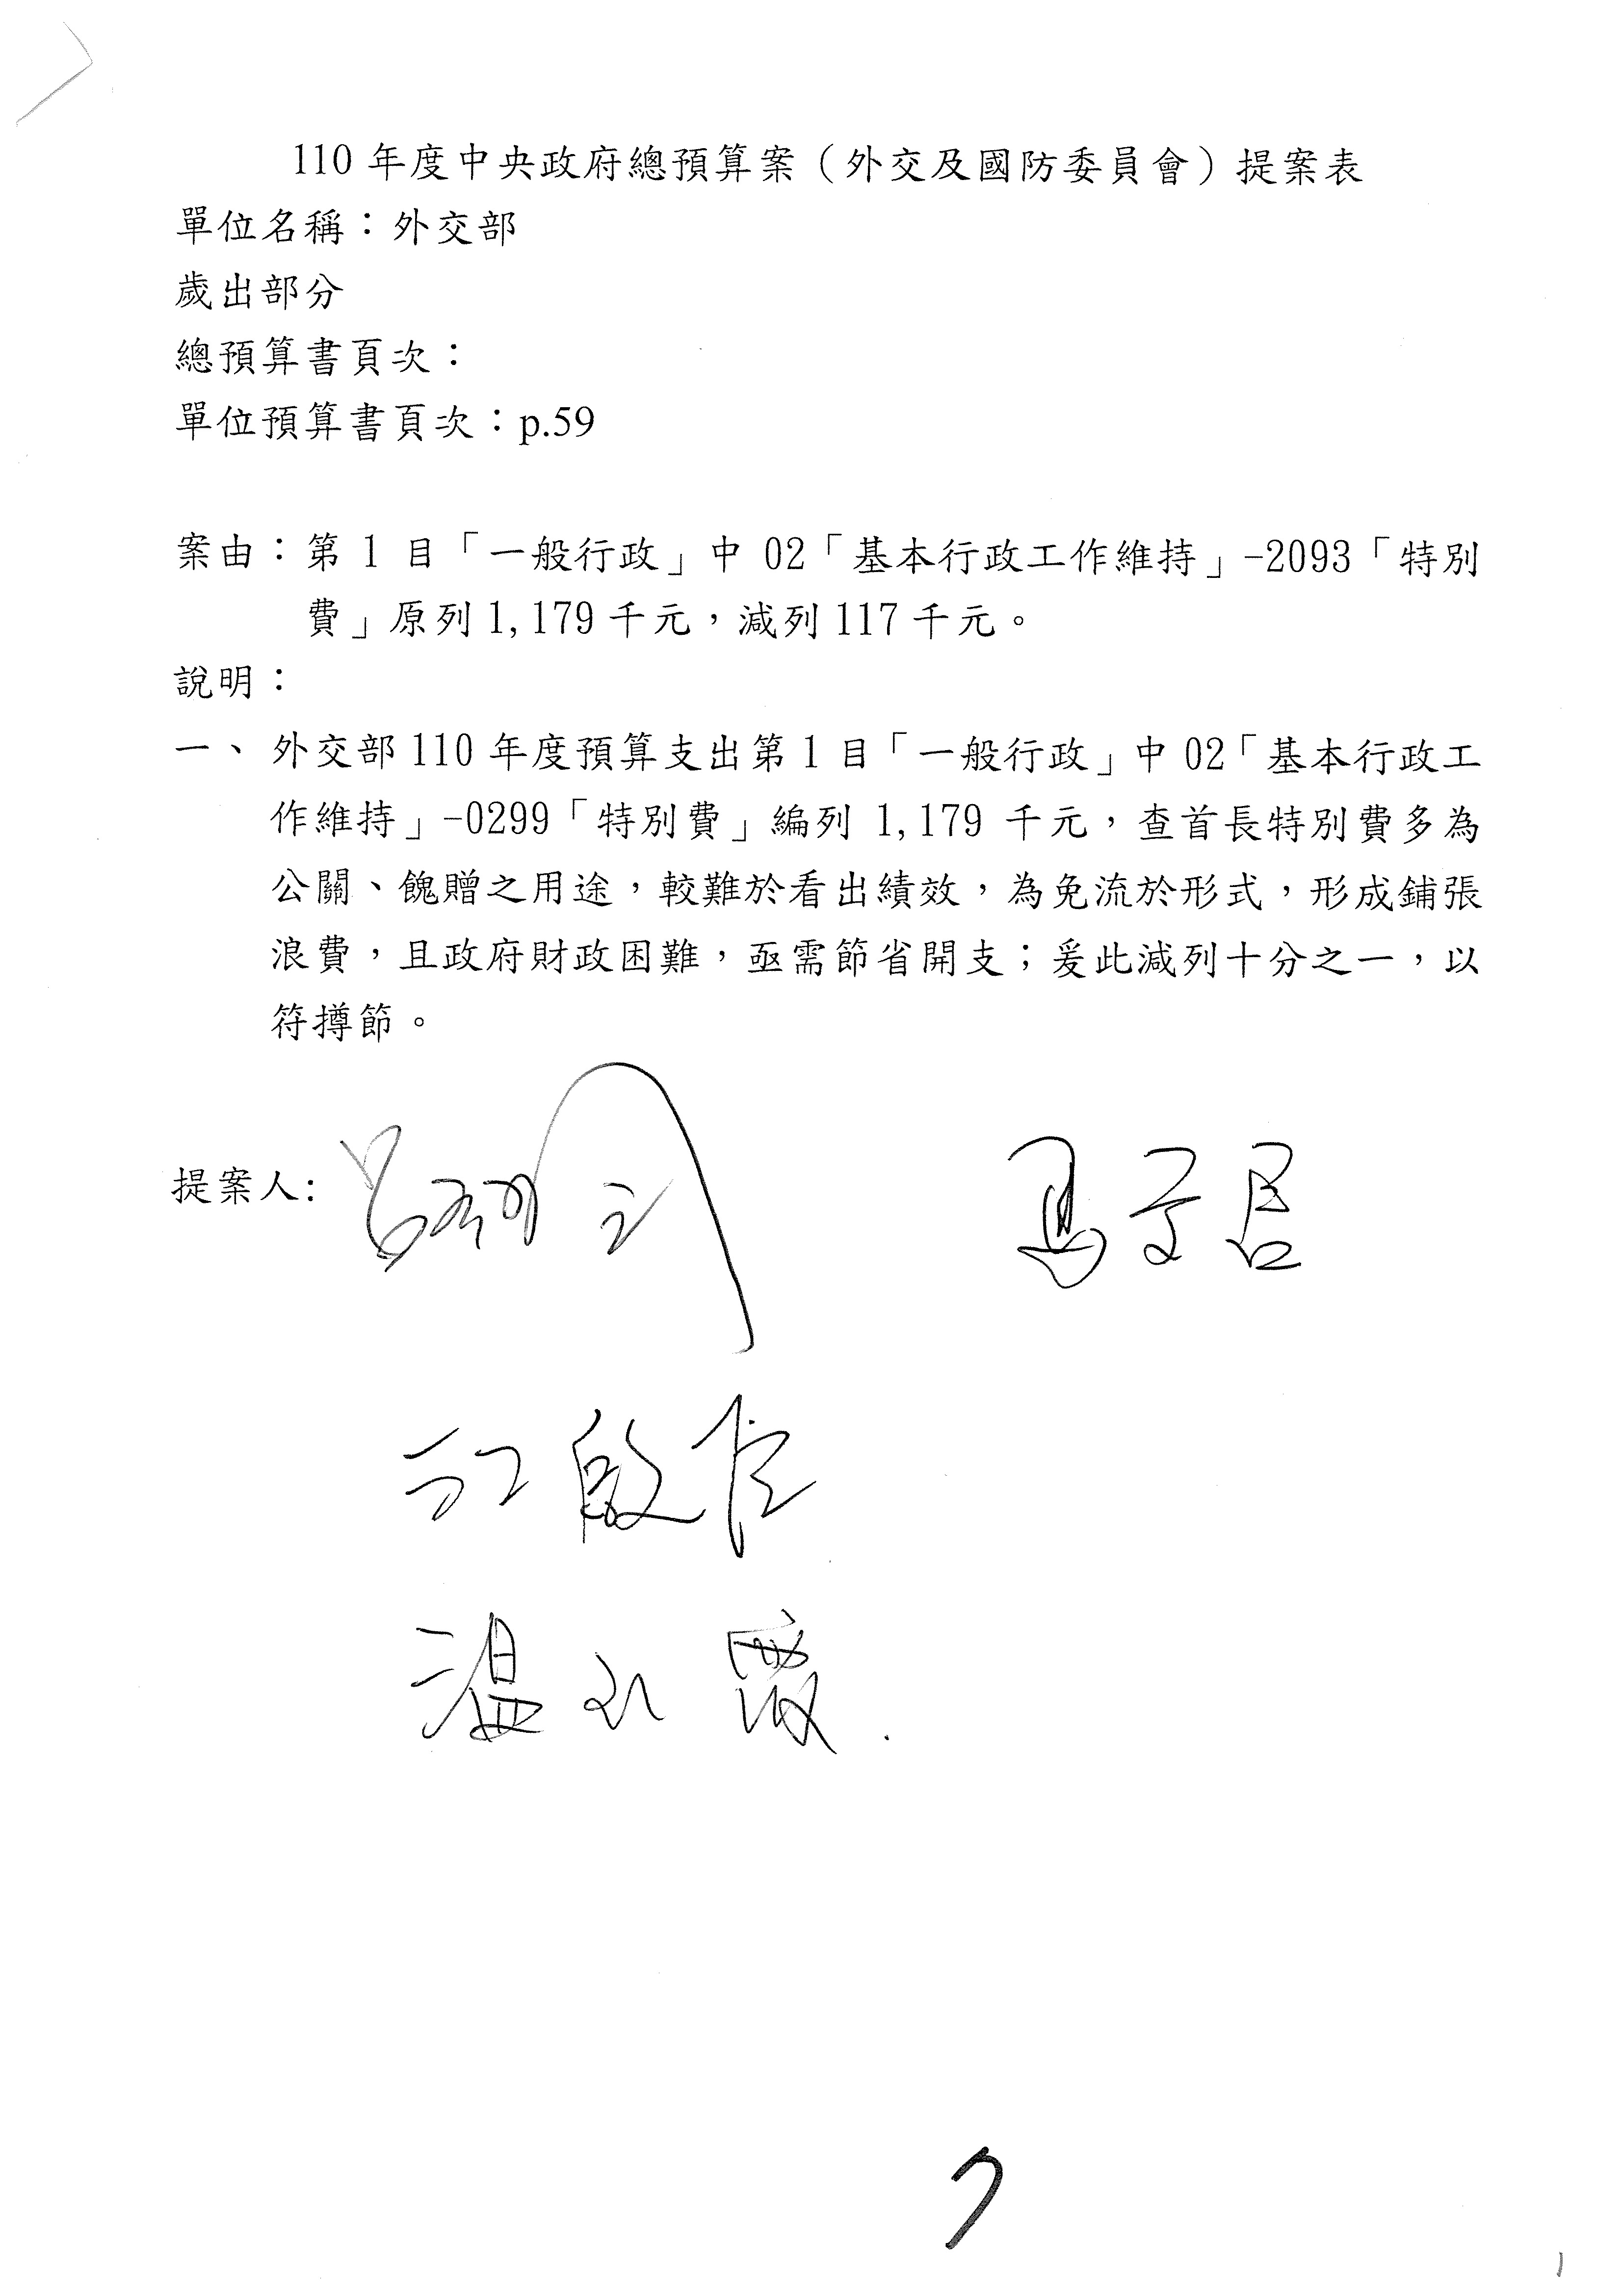 110 年度中央政府總預算案（外交及國防委員會）提案表
單位名稱：外交部
歲出部分
總預算書頁次：
單位預算書頁次：p.59
案由：第 1 目「一般行政」中 02「基本行政工作維持」-2093「特別
費」原列 1,179 千元，減列 117 千元。
說明：
一、外交部 110 年度預算支出第 1 目「一般行政」中 02「基本行政工
作維持」-0299「特別費」編列 1,179 千元，查首長特別費多為
公關、餽贈之用途，較難於看出績效，為免流於形式，形成鋪張
浪費，且政府財政困難，亟需節省開支；爰此減列十分之一，以
符撙節。
提案人:
馬文君
江啟臣
溫玉霞
7